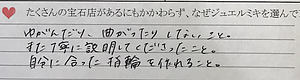 たくさんの宝石店があるにもかかわらず、なぜジュエルミキを選んで
ゆがんだり、曲がったりしないこと。
また丁寧に説明してくださったこと。
自分に合った指輪を作れること。